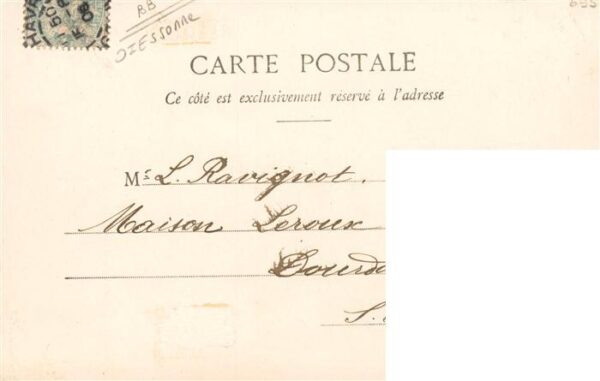 BB
CARTE POSTALE
Ce côté est exclusivement réservé à l'adresse
Ms L. Ravignot.
Maison Leroux
Dourd
S.